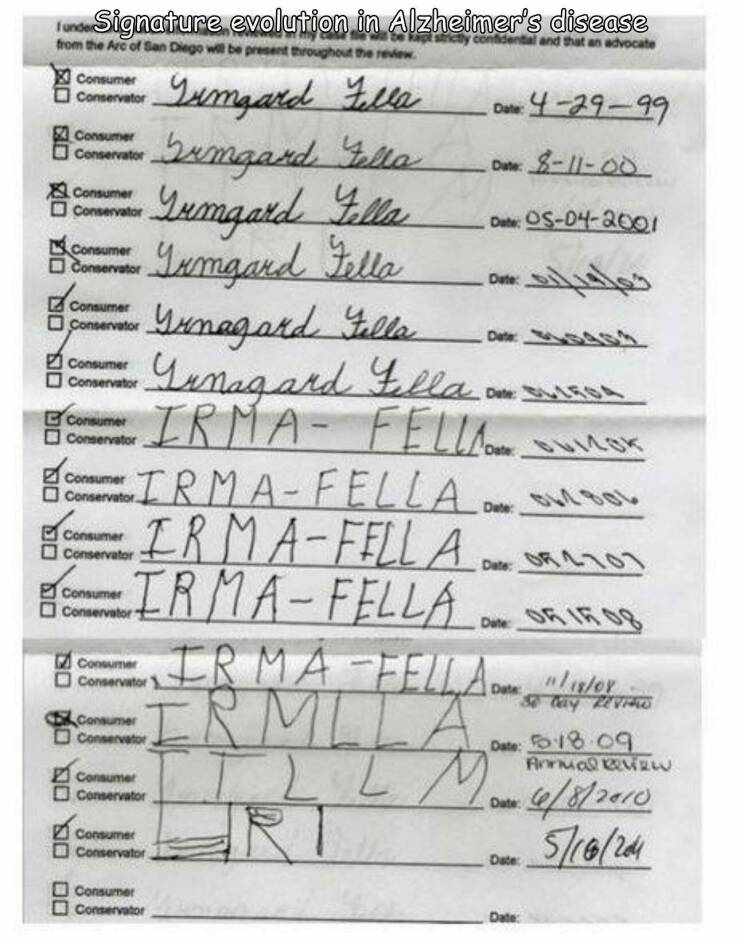 Signature evolution in Alzheimer's disease
I under my case file will be kept strictly confidential and that an advocate
from the Arc of San Diego will be present throughout the review.
Consumer
Conservator Yrmgard Fella Date: 4-29-99
Consumer
Conservator Yrmgard Fella Date: 8-11-00
Consumer
Conservator Yrmgard Fella Date: 05-04-2001
Consumer
Conservator Yrmgard Fella Date: 01/19/03
Consumer
Conservator Yrnagard Fella Date:
Consumer
Conservator Yrnagard Fella Date:
Consumer
Conservator IRMA- FELLA Date:
Consumer
Conservator IRMA-FELLA Date:
Consumer
Conservator IRMA-FELLA Date:
Consumer
Conservator IRMA-FELLA Date: 051508
Consumer
Conservator IRMA-FELLA Date: 11/18/08
30 Day Review
Consumer
Conservator IRMLLA Date: 5.18.09
Annual Review
Consumer
Conservator ITLLM Date: 6/8/2010
Consumer
Conservator IRI Date: 5/16/2011
Consumer
Conservator Date: